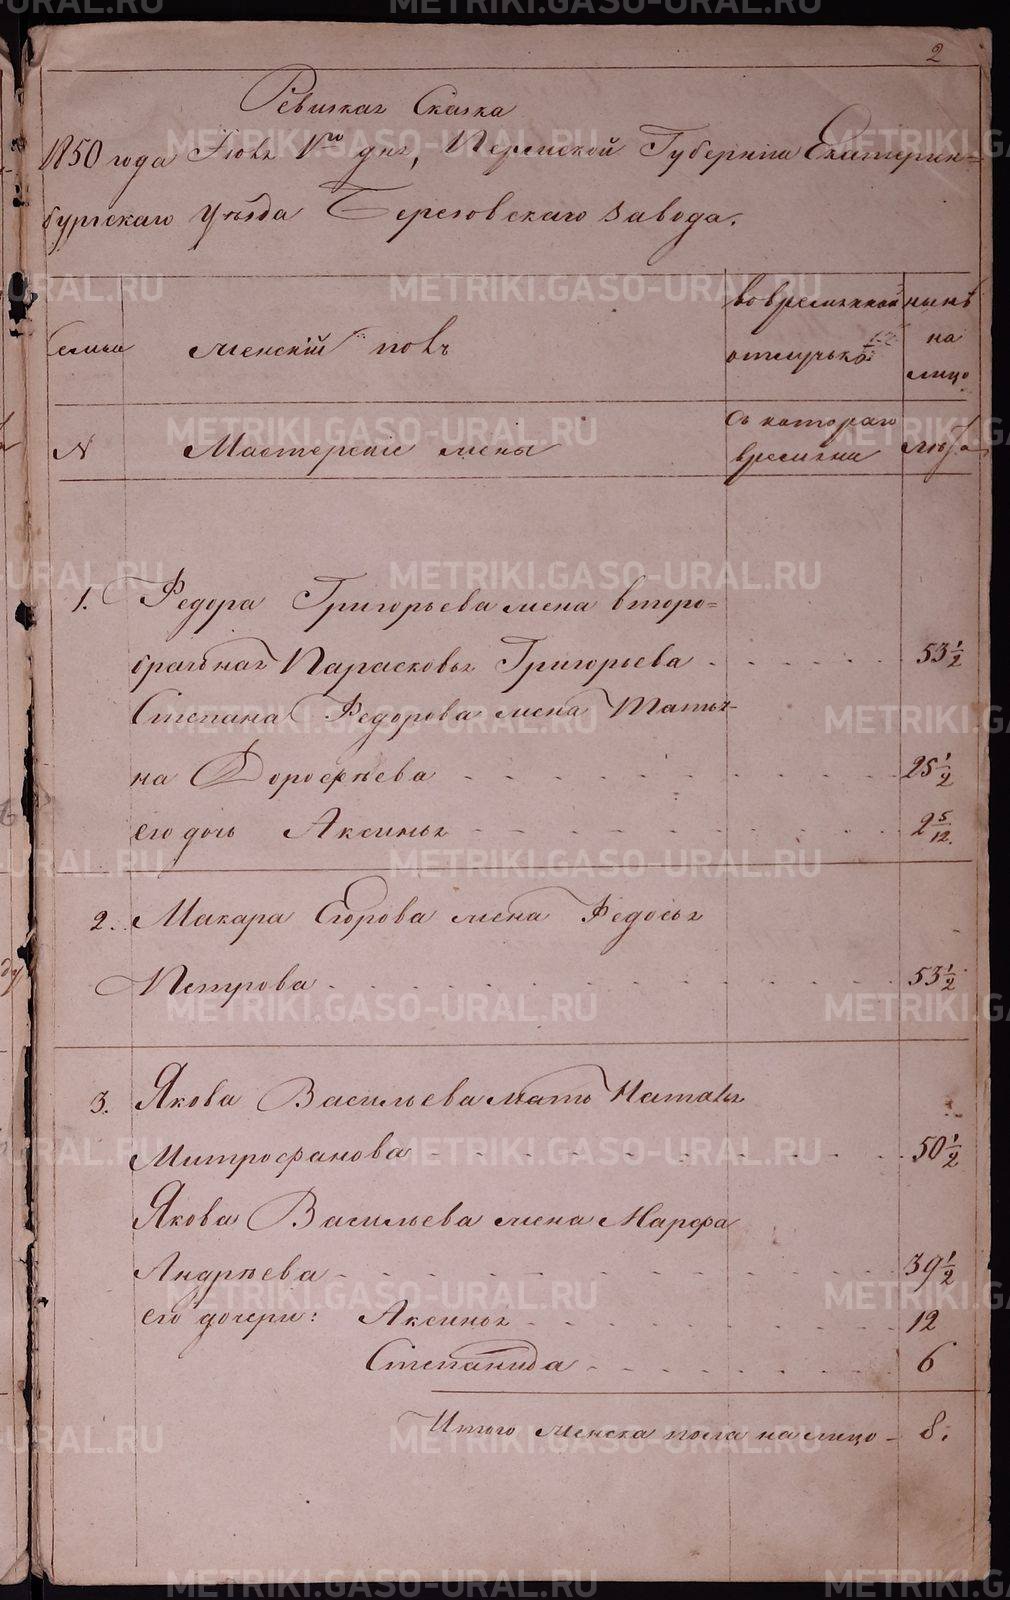 2
Ревизкая Сказка
1850 года Июля 1го дня, Пермской Губерніи Екатерин=
бургскаго Уѣзда Березовскаго завода.
Семьи
женскій полъ
во временной
отлучькѣ
нынѣ
на
лицо
N
Мастерскіе жены
съ котораго
времени
лѣта
1. Федора Григорьева жена второ=
брачьная Парасковья Григорьева 53 1/2
Степана Федорова жена Татья-
на Дорофѣева 25 1/2
его дочь Аксинья 2 5/12.
2. Макара Егорова жена Федосья
Петрова 53 1/2
3. Якова Васильева мать Наталья
Митрофанова 50 1/2
Якова Васильева жена Марфа
Андрѣева 39 1/2
его дочери: Аксинья 12
Степанида 6
Итого женска пола на лицо - 8.
METRIKI.GASO-URAL.RU